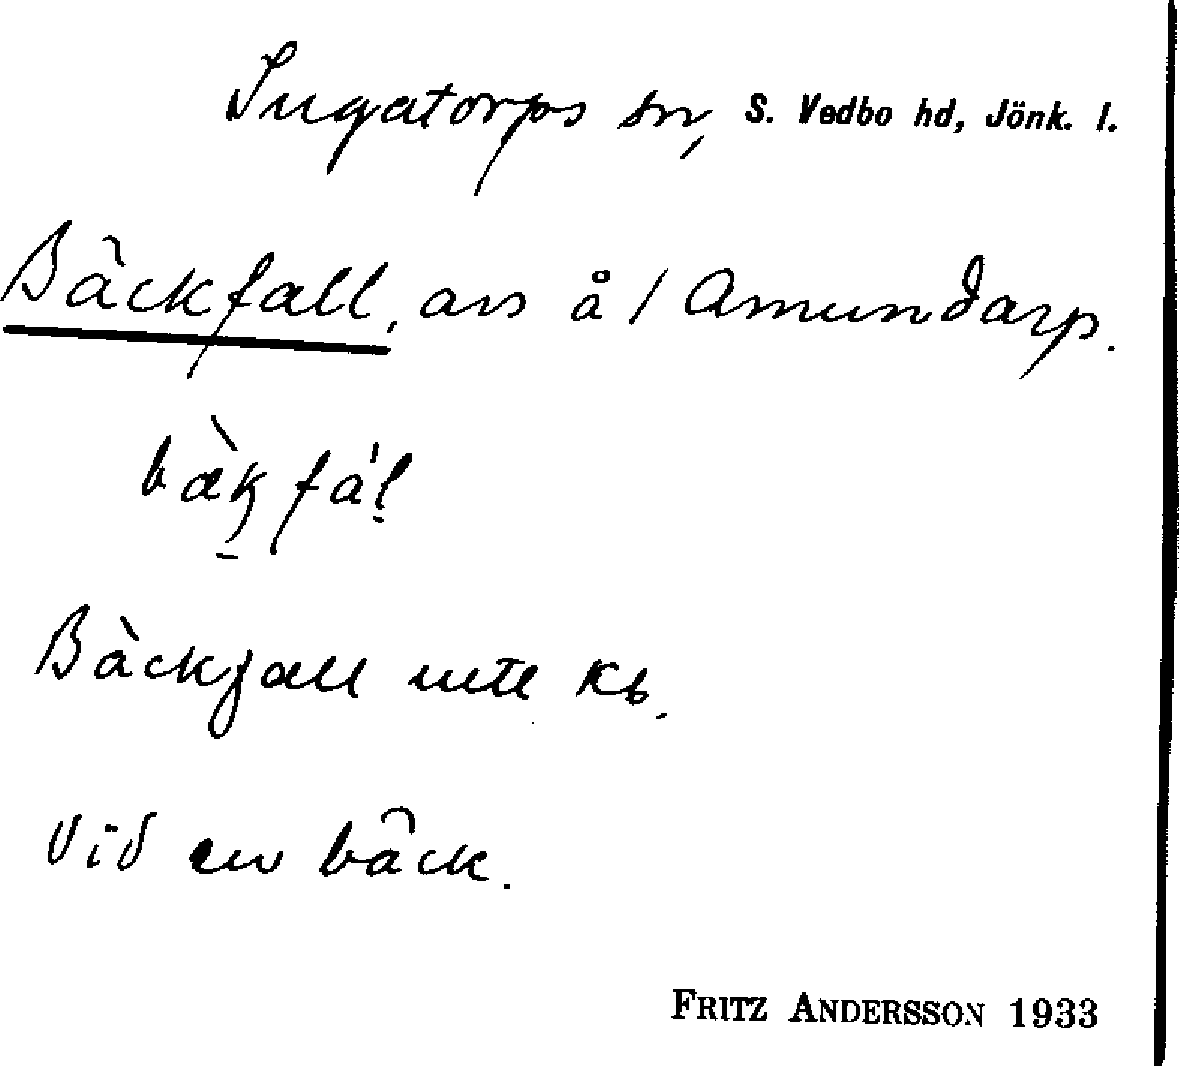 Ingatorps sn, S. Vedbo hd, Jönk. l.
Bäckfall, avs å / Amundarp.
bæ̀k fál
Bäckfall inte Kb.
Vid en bäck.
FRITZ ANDERSSON 1933